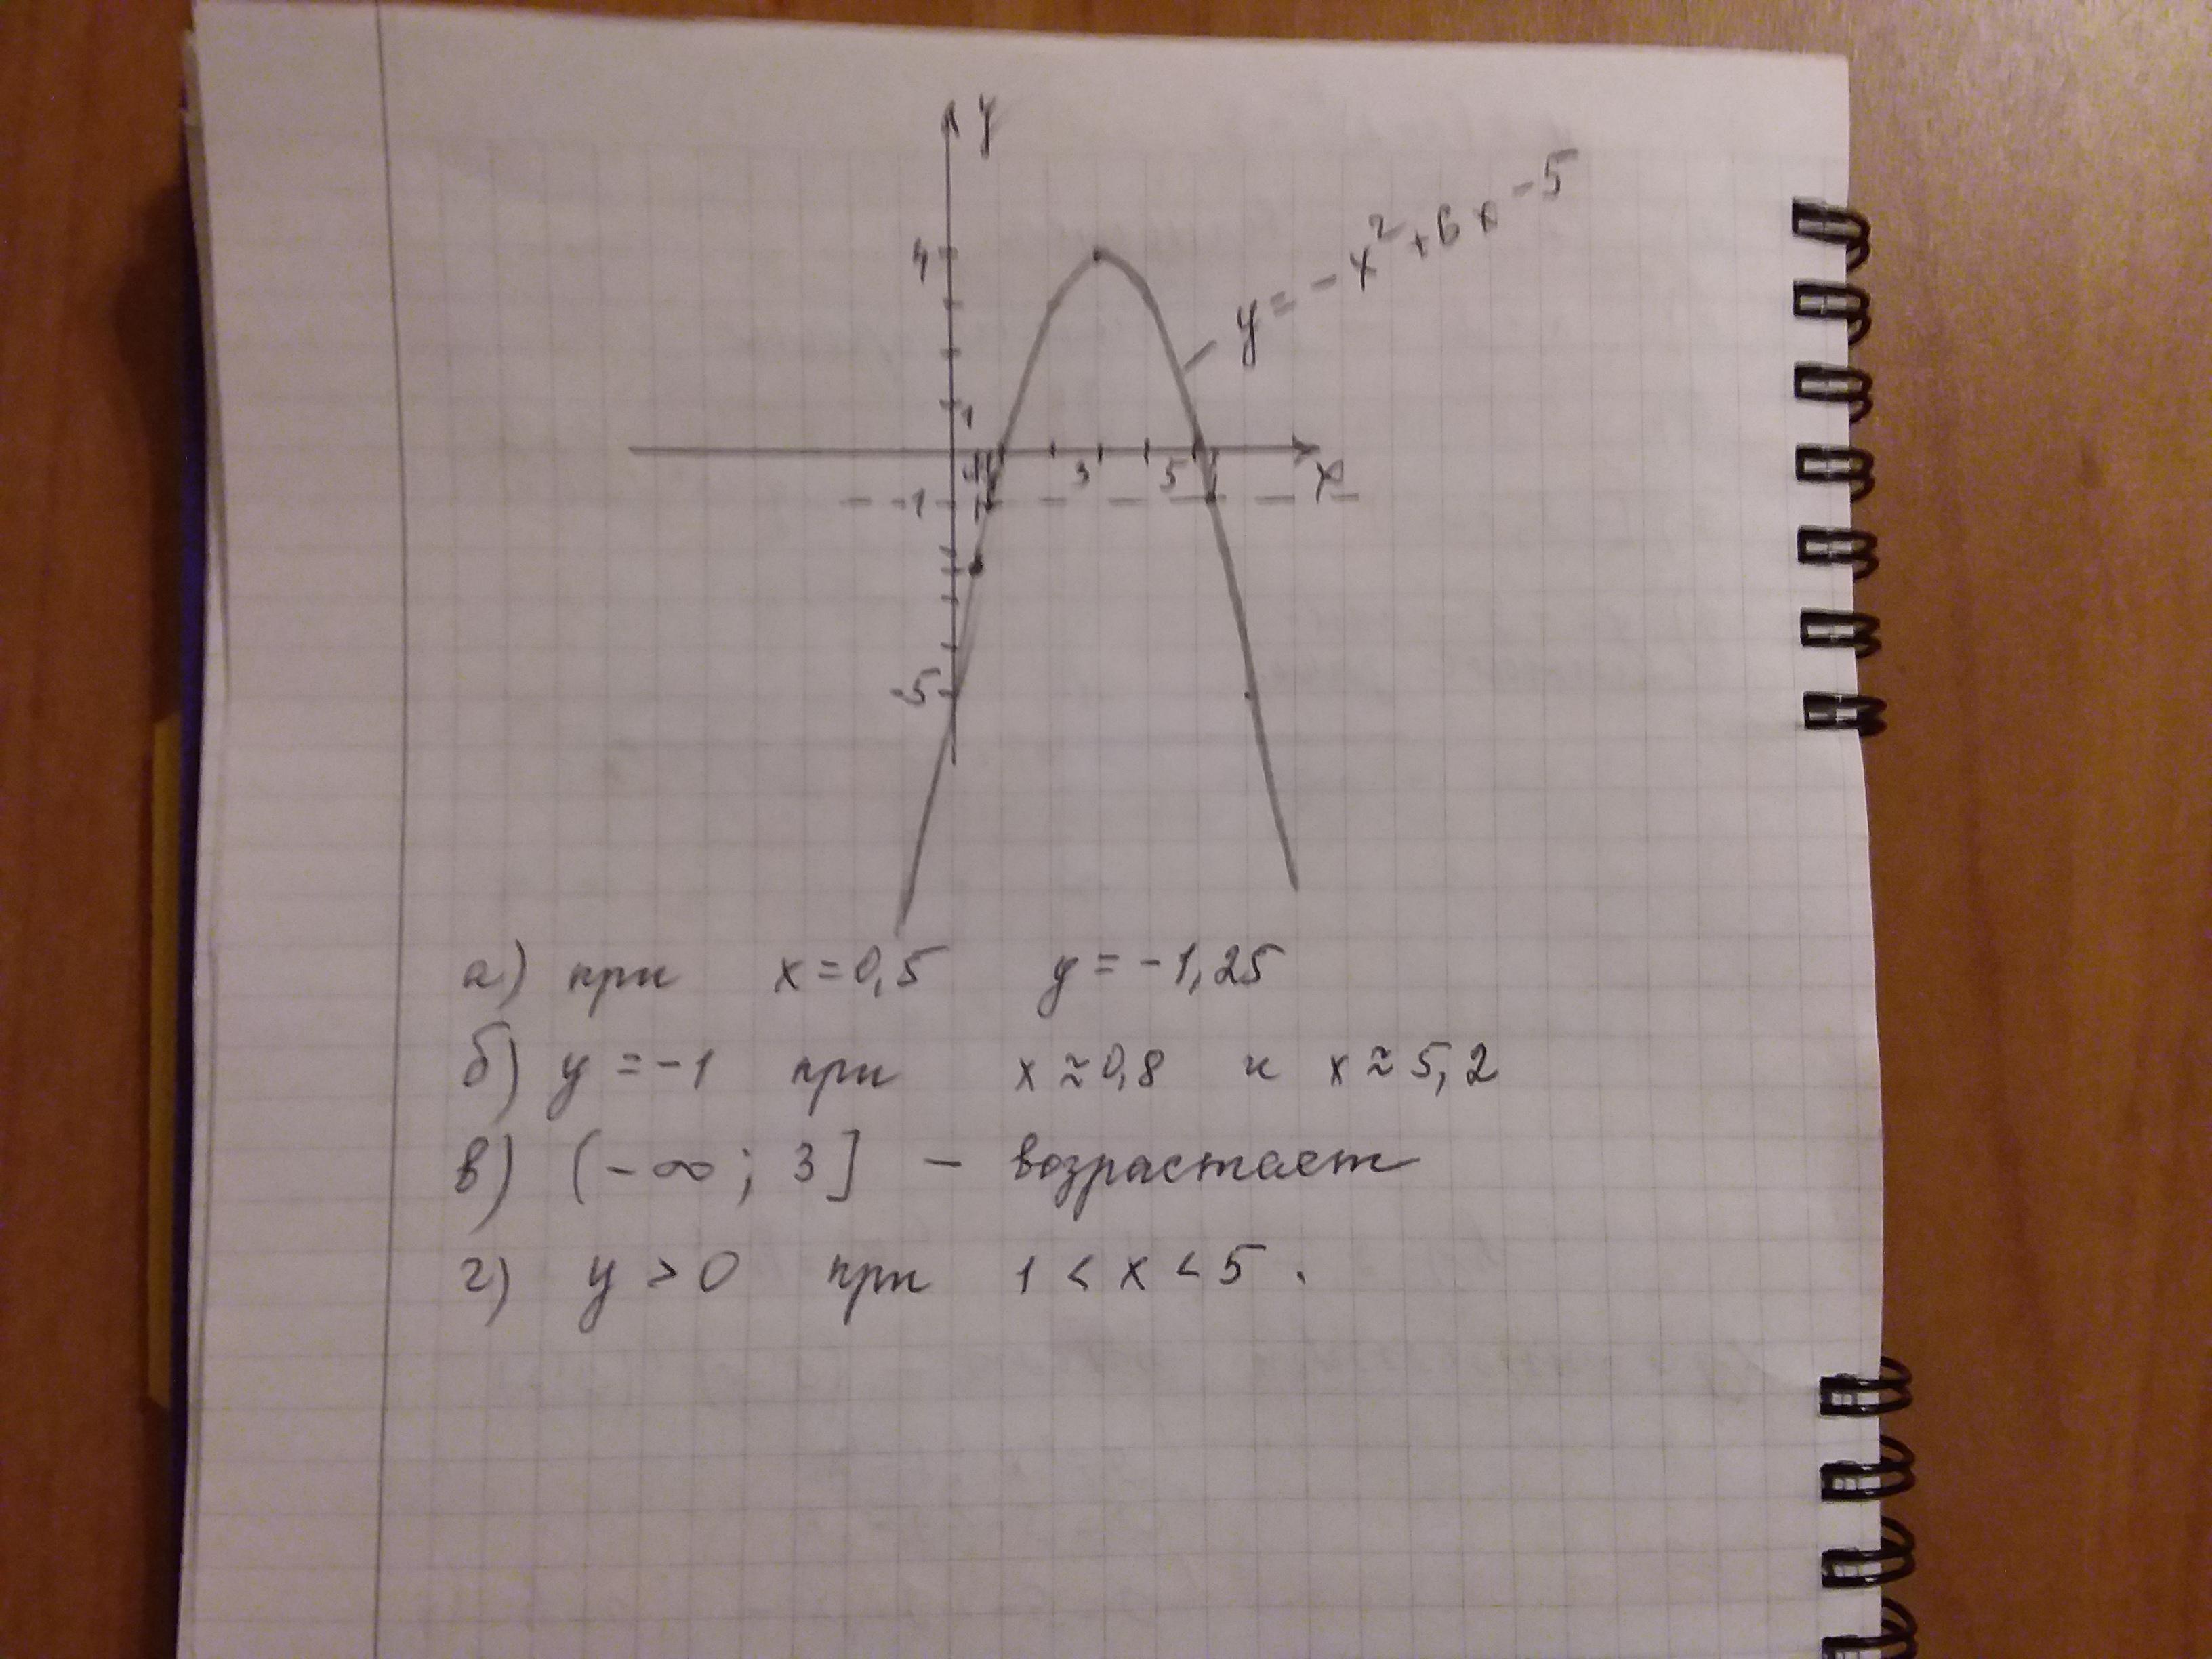 y
y = -x²+6x-5
4
1
1 3 5 x
-1
-5
а) при x=0,5 y=-1,25
б) y=-1 при x≈0,8 и x≈5,2
в) (-∞; 3] - возрастает
г) y>0 при 1<x<5.